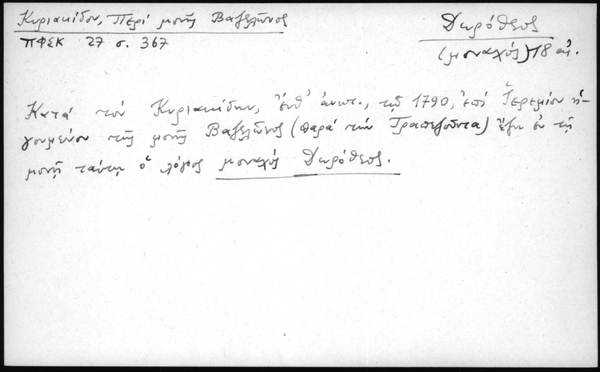 Κυριακίδου, Περί μονῆς Βαζελῶνος
ΠΦΣΚ 27 σ. 367
Δωρόθεος
(μοναχός) 18 αἰ.
Κατά τόν Κυριακίδην, ἔνθ' ἀνωτ., τῷ 1790, ἐπί Ἱερεμίου ἡ-
γουμένου τῆς μονῆς Βαζελῶνος (παρά τήν Τραπεζοῦντα) ἔζη ἐν τῇ
μονῇ ταύτῃ ὁ λόγιος μοναχός Δωρόθεος.